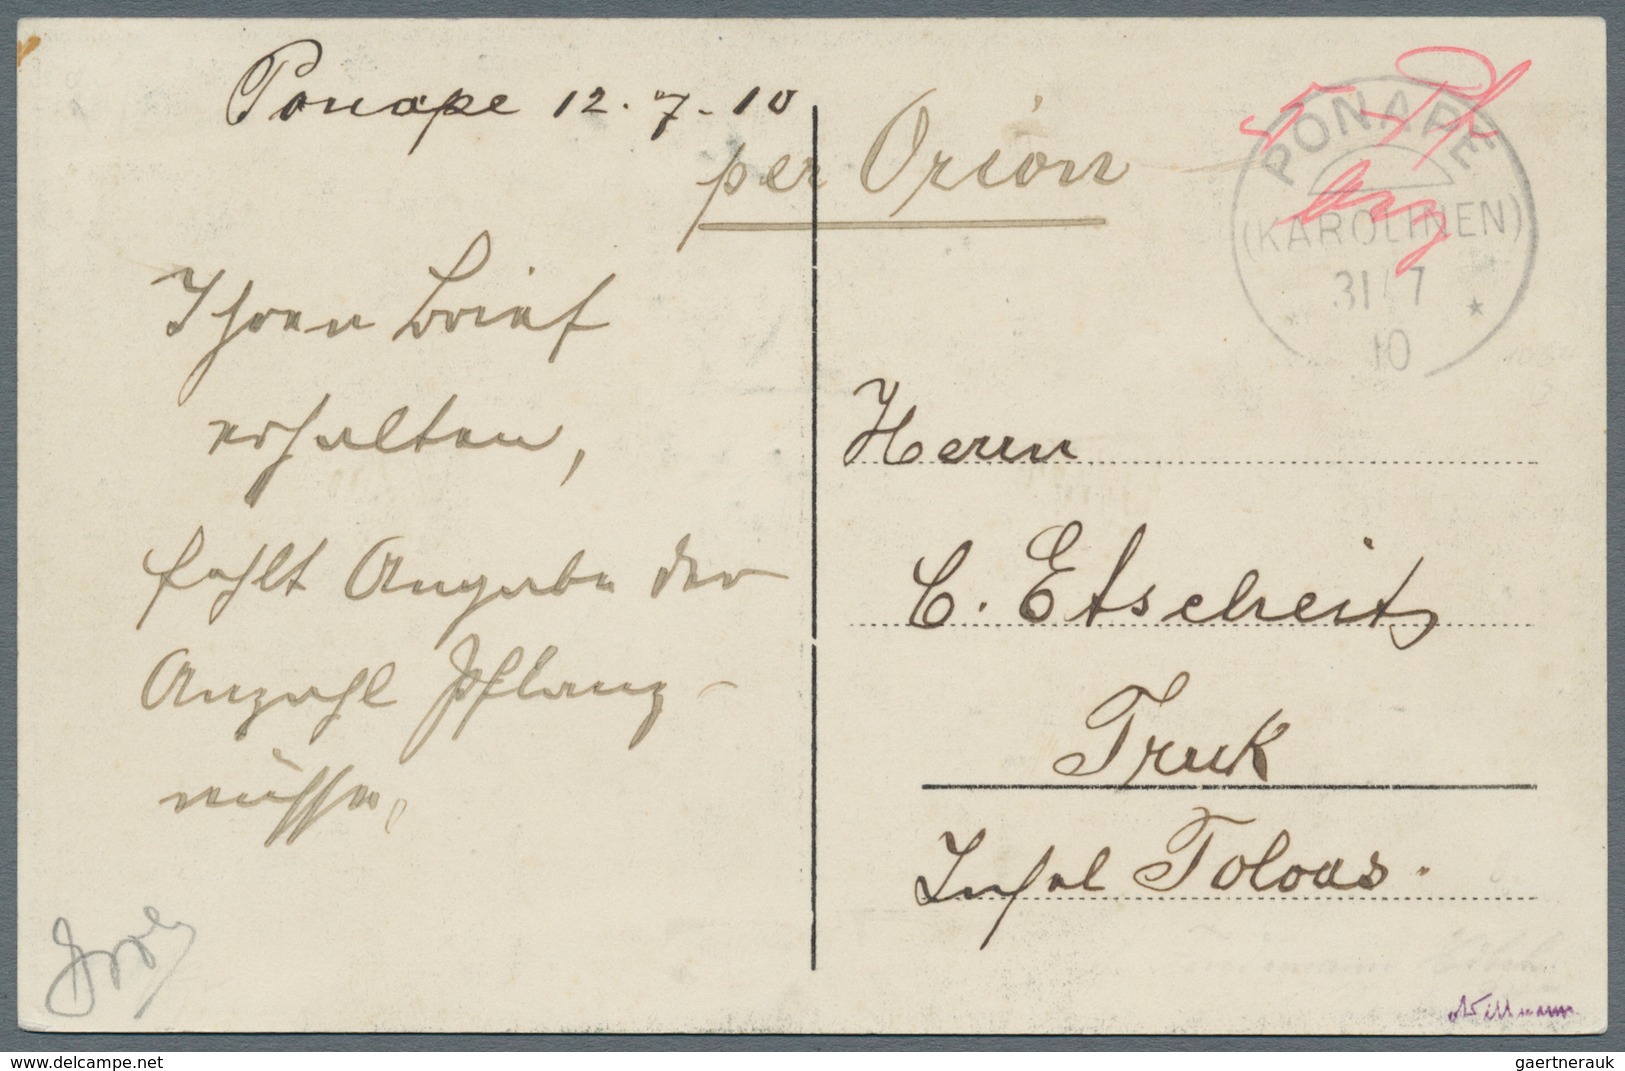 Ponape 12.7.10
per Orion
5 Pf
PONAPE
(KAROLINEN)
31/7
10
Ihren Brief
erhalten,
fehlt Angabe der
Anzahl Pflanz-
nüsse,
Herrn
C. Etscheit
Truk
Insel Toloas.
gaertnerauk@gmail.com